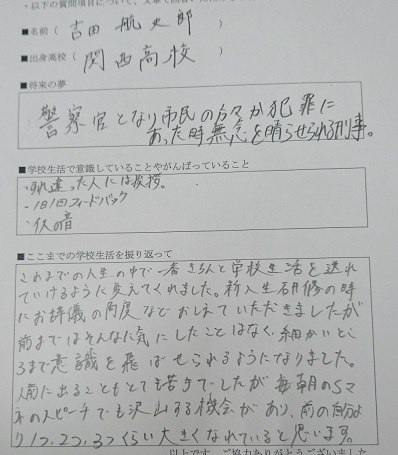 ・以下の質問項目について、文章で回答
■名前( 吉田 航史郎 )
■出身高校( 関西高校 )
■将来の夢
警察官となり市民の方々が犯罪に
あった時無念を晴らせられる刑事。
■学校生活で意識していることやがんばっていること
・すれ違った人には挨拶。
・1日1フィードバック
・仏の音
■ここまでの学校生活を振り返って
これまでの人生の中で一番きちんと学校生活を送れ
ていけるように変えてくれました。新入生研修の時
にお辞儀の角度などおしえていただきましたが
前まではそんなに気にしたことはなく、細かいとこ
ろまで意識を飛ばせられるようになりました。
人前に出ることもとても苦手でしたが毎朝のSマ
ネのスピーチでも沢山する機会があり、前の自分よ
り1つ、2つ、3つくらい大きくなれていると思います。
以上です。ご協力ありがとうございました